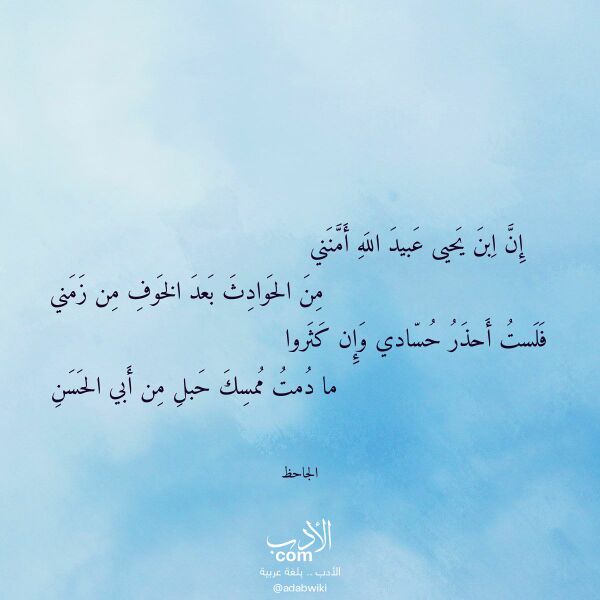 إِنَّ اِبنَ يَحيى عَبيدَ اللَهِ أَمَّنَني
مِنَ الحَوادِثَ بَعدَ الخَوفِ مِن زَمَني
فَلَستُ أَحذَرُ حُسّادي وَإِن كَثَروا
ما دُمتُ مُمسِكَ حَبلِ مِن أَبي الحَسَنِ
الجاحظ
الأدب
com
الأدب .. بلغة عربية
@adabwiki